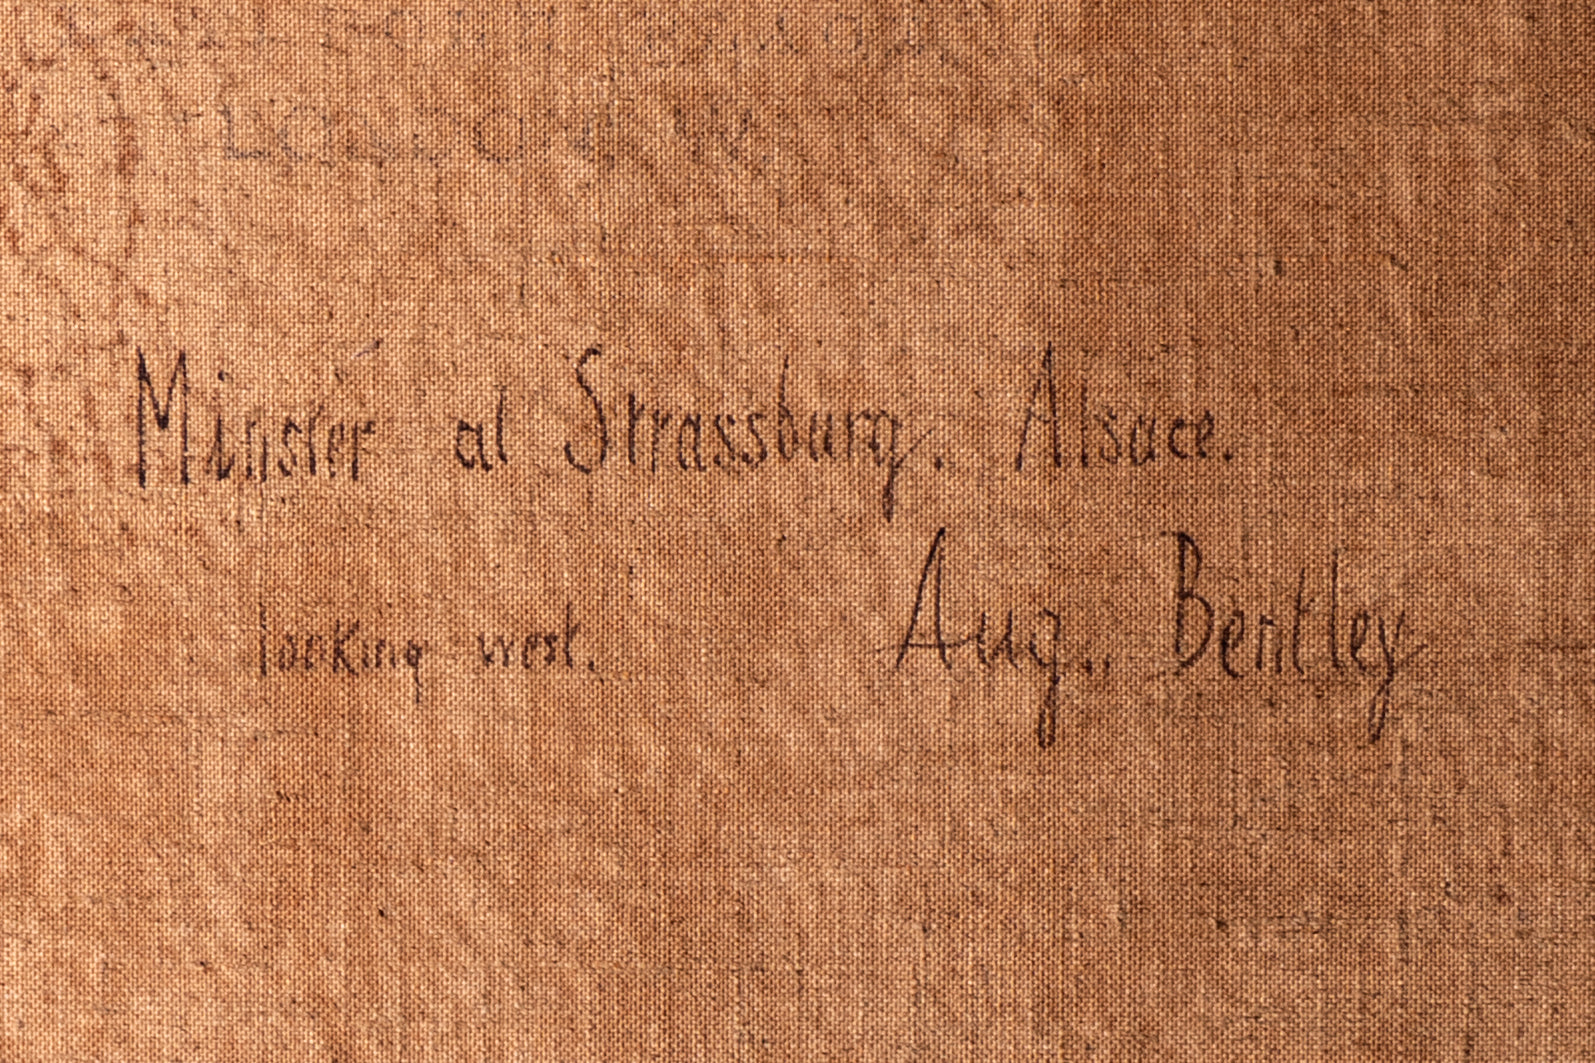 LONDON
Minster at Strassburg. Alsace.
looking west. Aug. Bentley